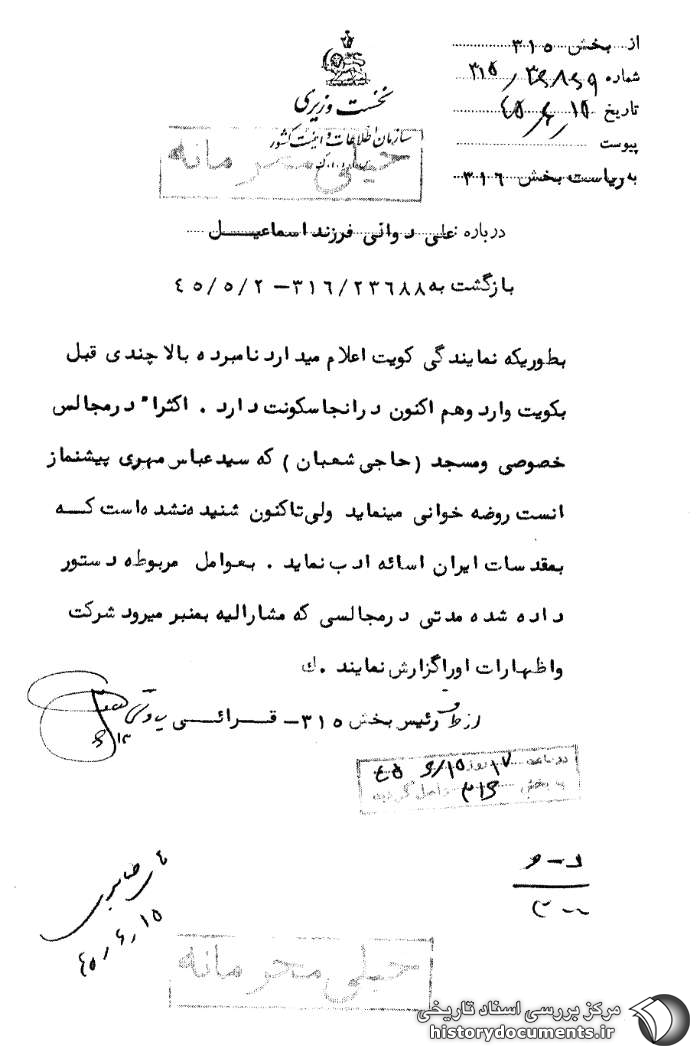 از بخش ۳۱۵
شماره ۳۱۵/۳۶۸۶۹
تاریخ ۴۵/۶/۱۵
پیوست
به ریاست بخش ۳۱٦
نخست وزیری
سازمان اطلاعات و امنیت کشور
خیلی محرمانه
درباره: علی دوانی فرزند اسماعیل
بازگشت به ۳۱٦/۲۳٦۸۸ - ٤۵/۵/۲
بطوریکه نمایندگی کویت اعلام میدارد نامبرده بالا چندی قبل
بکویت وارد وهم اکنون درانجا سکونت دارد . اکثرا" درمجالس
خصوصی ومسجد (حاجی شعبان) که سیدعباس مهری پیشنماز
انست روضه خوانی مینماید ولی تاکنون شنیده نشده است که
بمقدسات ایران اسائه ادب نماید . بعوامل مربوطه دستور
داده شده مدتی درمجالسی که مشارالیه بمنبر میرود شرکت
واظهارات اوراگزارش نمایند .ك
از طرف رئیس بخش ۳۱۵ - قرائی
در ساعت ۱۷ روز ۶/۱۵ ۴۵
به بخش ۳۱۶ واصل گردید
۴۵/۶/۱۵
خیلی محرمانه
مرکز بررسی اسناد تاریخی
historydocuments.ir